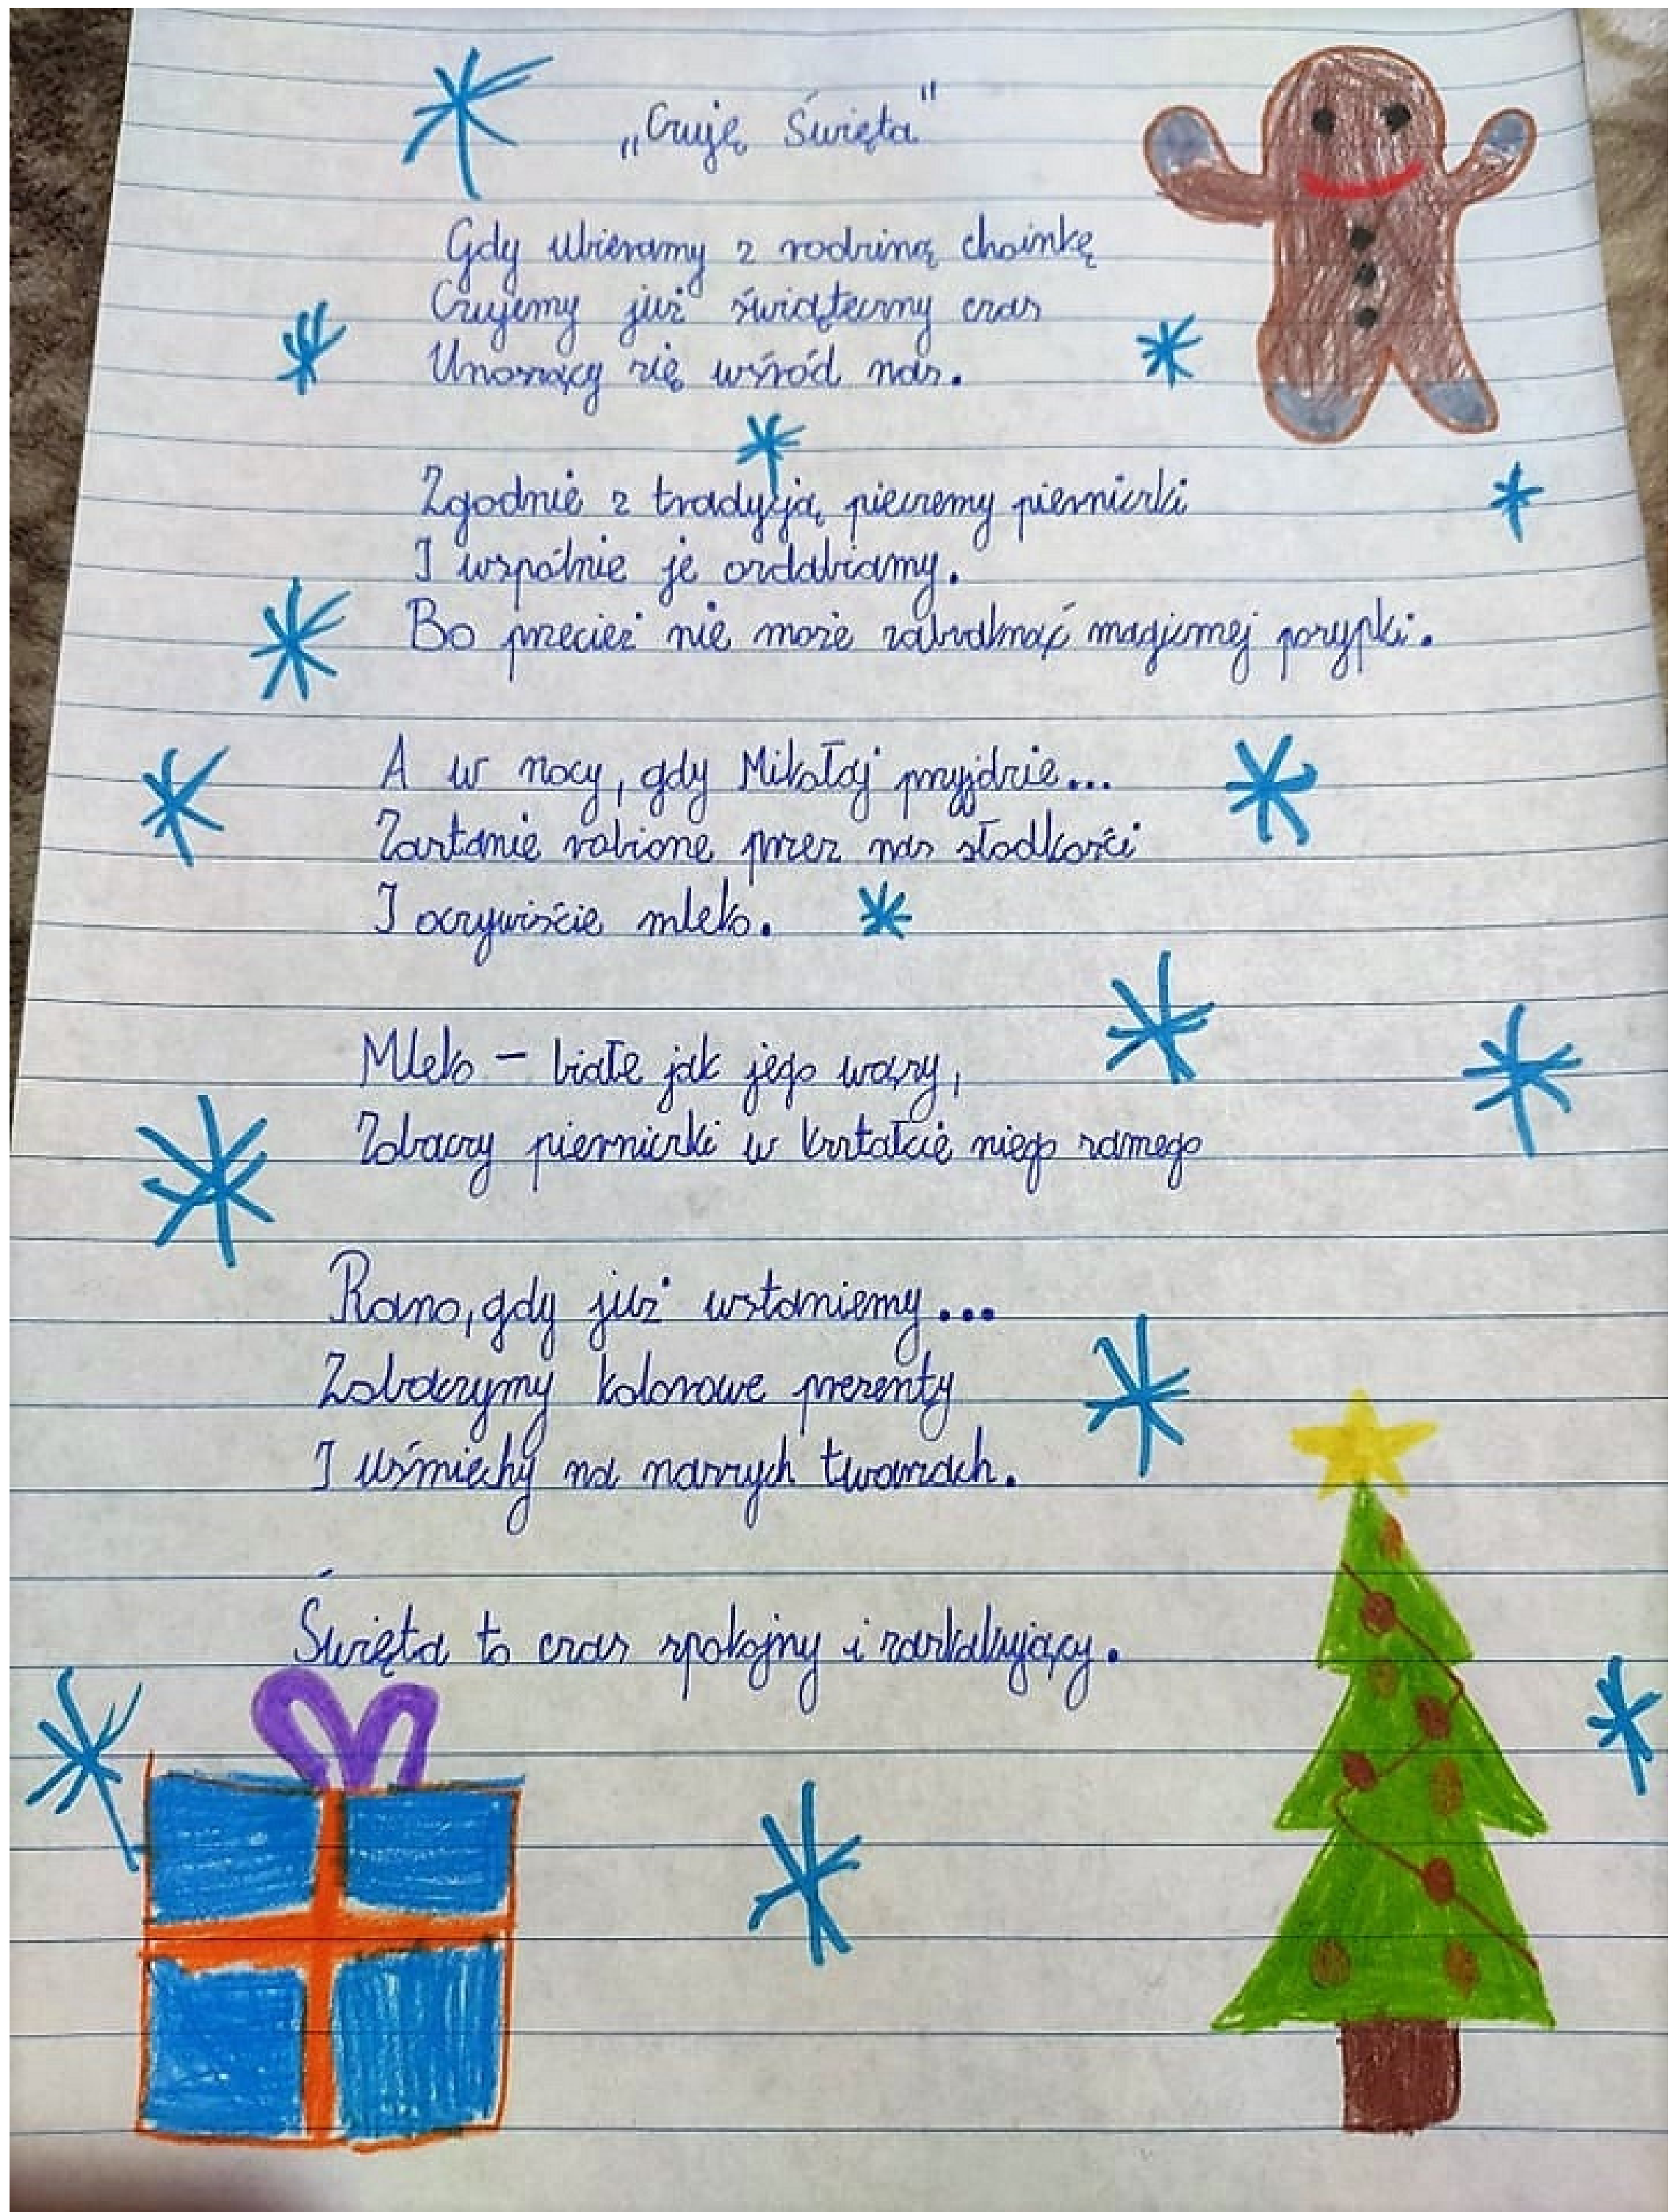 „Czuję Święta"
Gdy ubieramy z rodziną choinkę
Czujemy już świąteczny czas
Unoszący się wśród nas.
Zgodnie z tradycją pieczemy pierniczki
I wspólnie je ozdabiamy.
Bo przecież nie może zabraknąć magicznej posypki.
A w nocy, gdy Mikołaj przyjdzie...
Zastanie robione przez nas słodkości
I oczywiście mleko.
Mleko – białe jak jego wąsy,
Zobaczy pierniczki w kształcie niego samego
Rano, gdy już wstaniemy...
Zobaczymy kolorowe prezenty
I uśmiechy na naszych twarzach.
Święta to czas spokojny i zaskakujący.